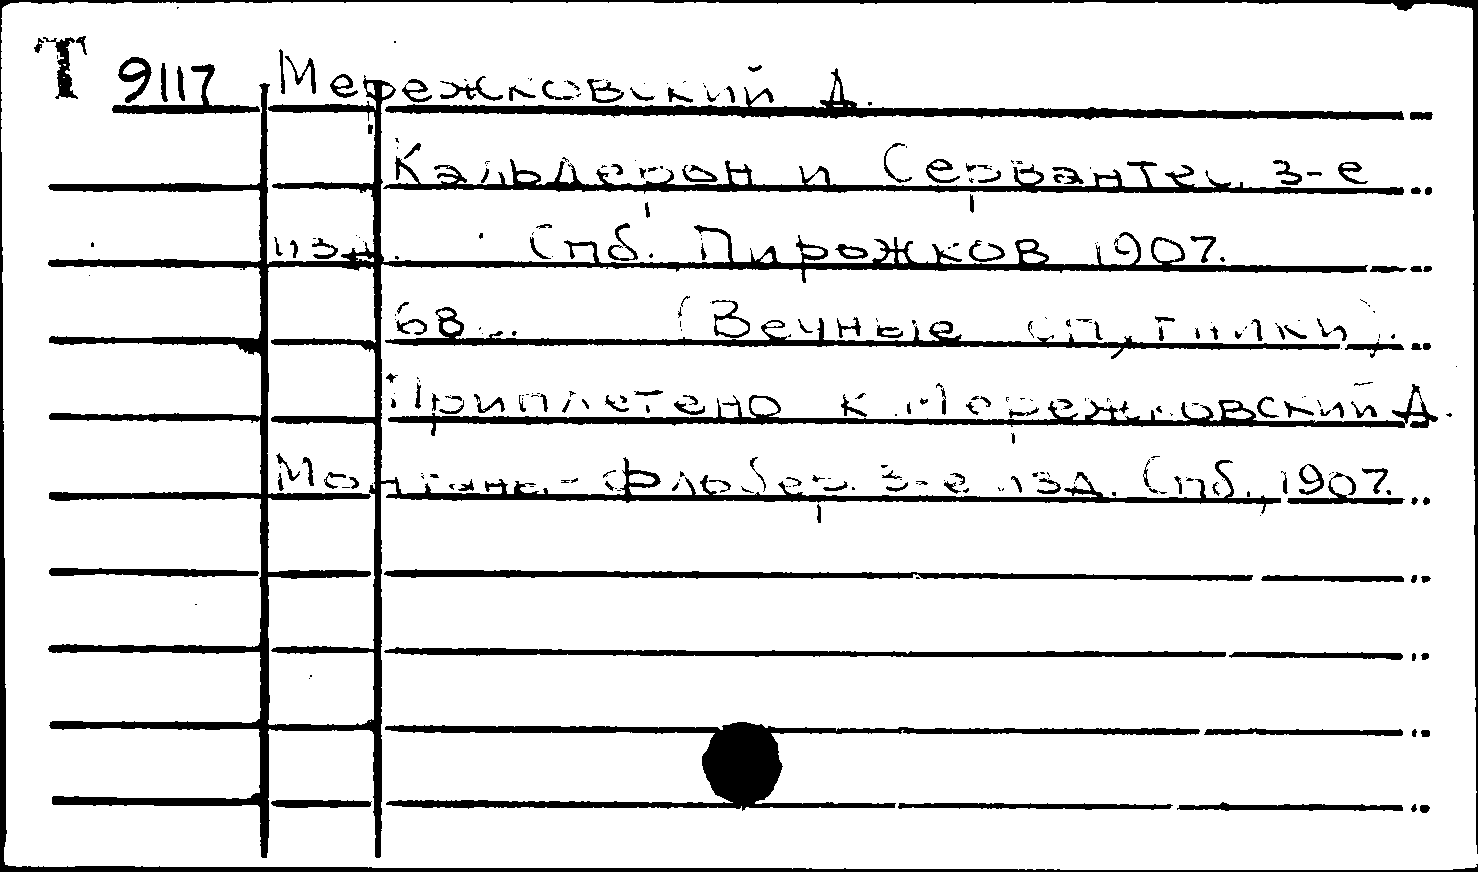 Т 9117 Мережковский Д.
Кальдерон и Сервантес. 3-е
изд. Спб. Пирожков 1907.
68 с. (Вечные спутники).
Приплетено к Мережковский Д.
Монтань - Флобер. 3-е изд. Спб., 1907.